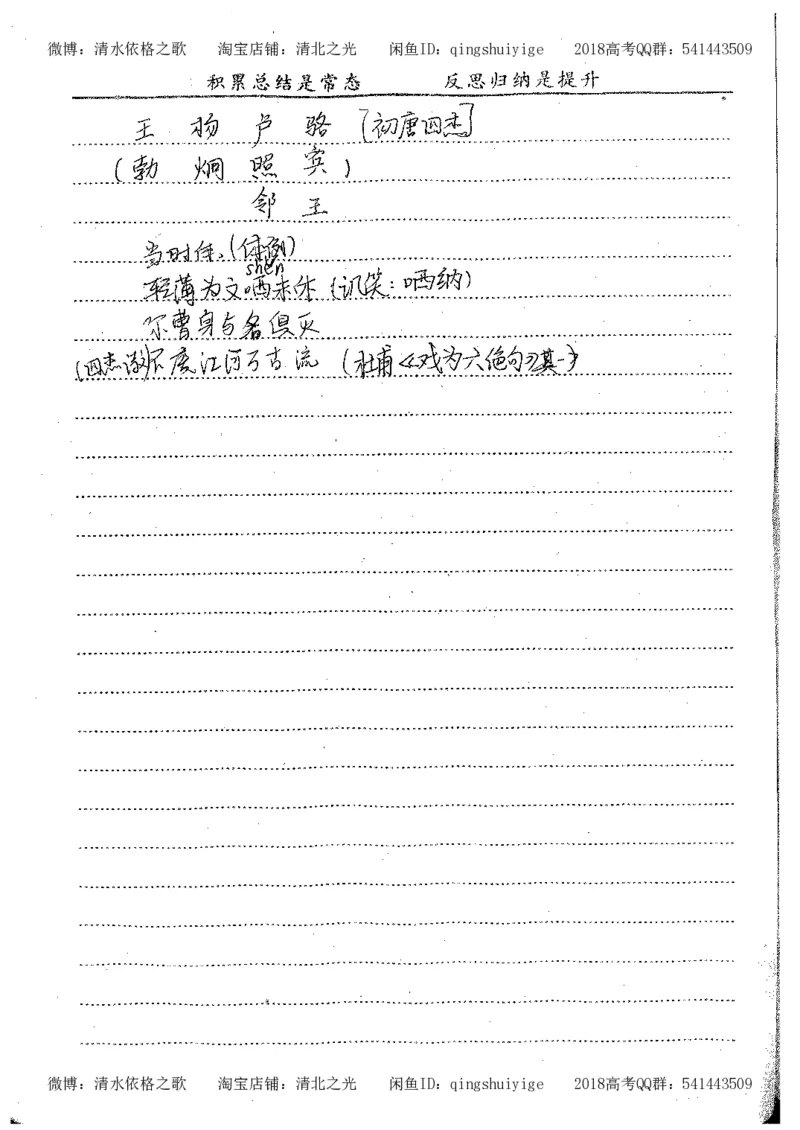 微博：清水依格之歌 淘宝店铺：清北之光 闲鱼ID：qingshuiyige 2018高考QQ群：541443509
积累总结是常态 反思归纳是提升
王 杨 卢 骆 [初唐四杰]
(勃 炯 照 宾)
邻 王
当时体，(体例)
shěn
轻薄为文哂未休 (讥笑：哂纳)
尔曹身与名俱灭
(四杰)不废江河万古流 (杜甫《戏为六绝句》其一)
微博：清水依格之歌 淘宝店铺：清北之光 闲鱼ID：qingshuiyige 2018高考QQ群：541443509